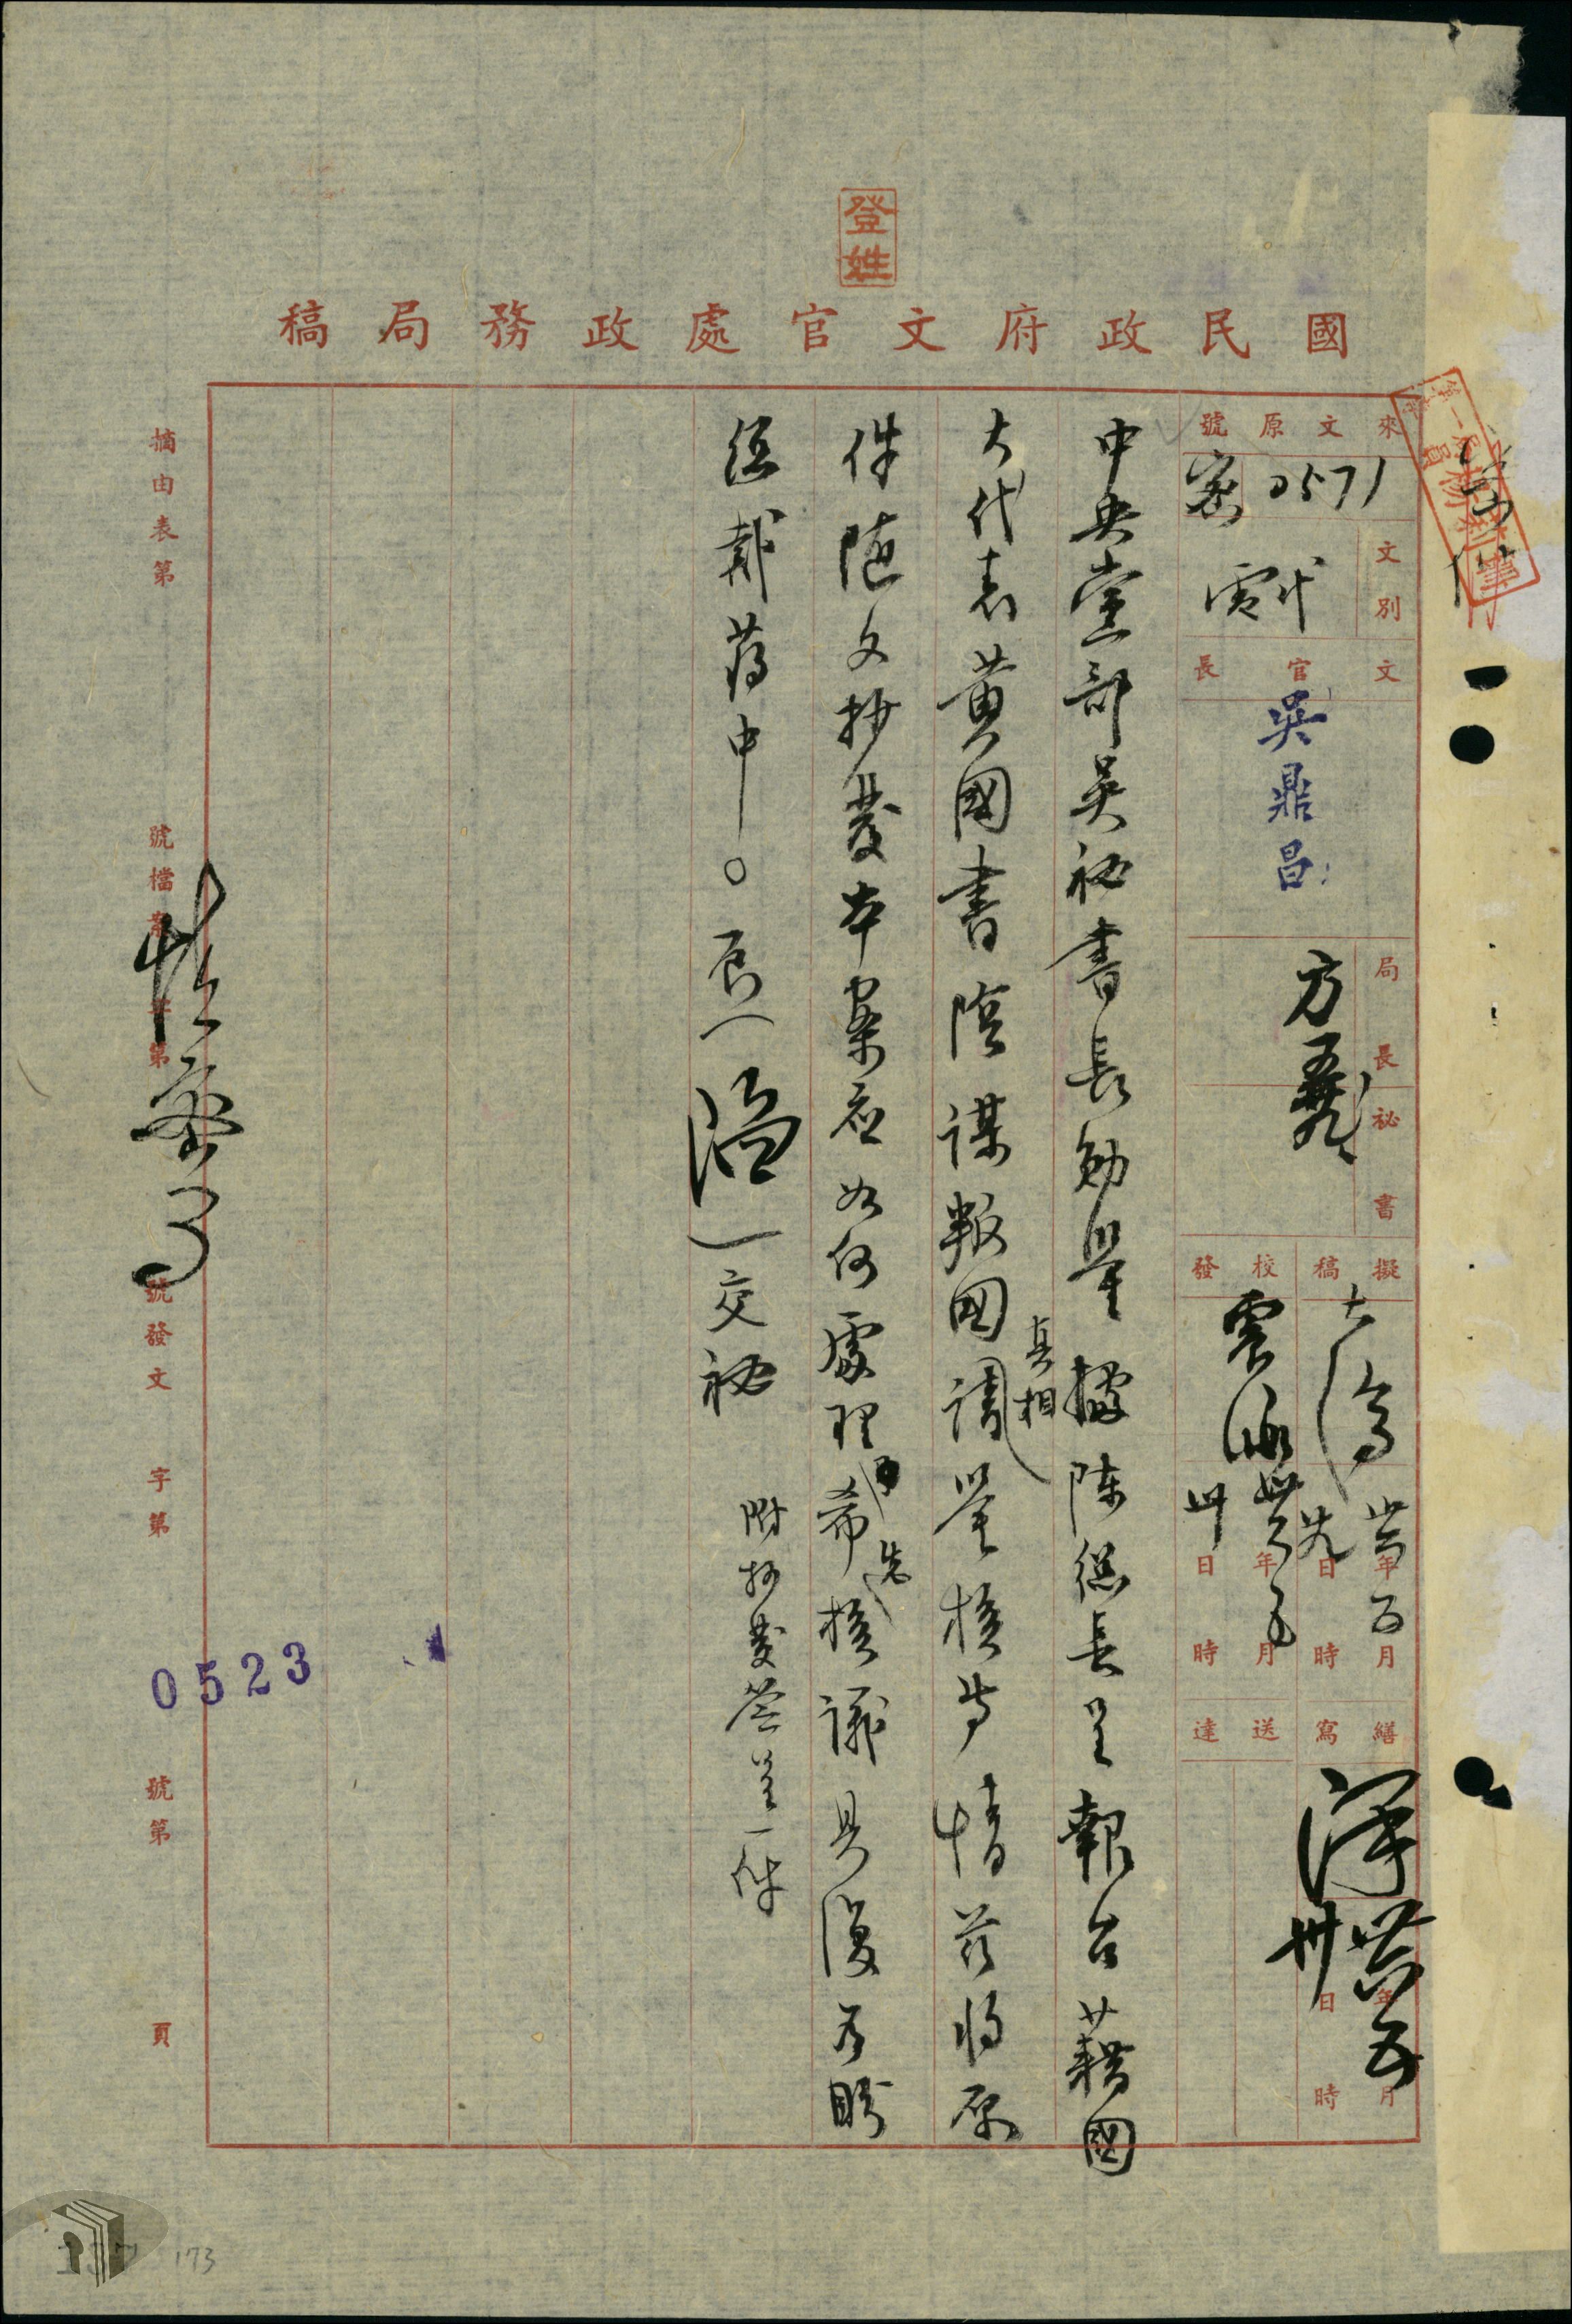 登
國民政府文官處政務局稿
來文原號
0571
密
文別
代電
文官長
吳鼎昌
局長
方
秘書
擬稿
卅六年五月廿九日時
校發
卅六年五月卅日時
繕寫
澤
卅六年五月卅日時
送達
中央黨部吳秘書長勛鑒據陳總長呈報台籍國
大代表黃國書陰謀叛國真相
謹呈核等情茲將原
件隨文抄發本案應如何處理希先核議具復為盼
蔣中○辰(
)交秘
附抄發簽呈一件
摘由表第號檔案字第號發文字第號第頁
0523
173